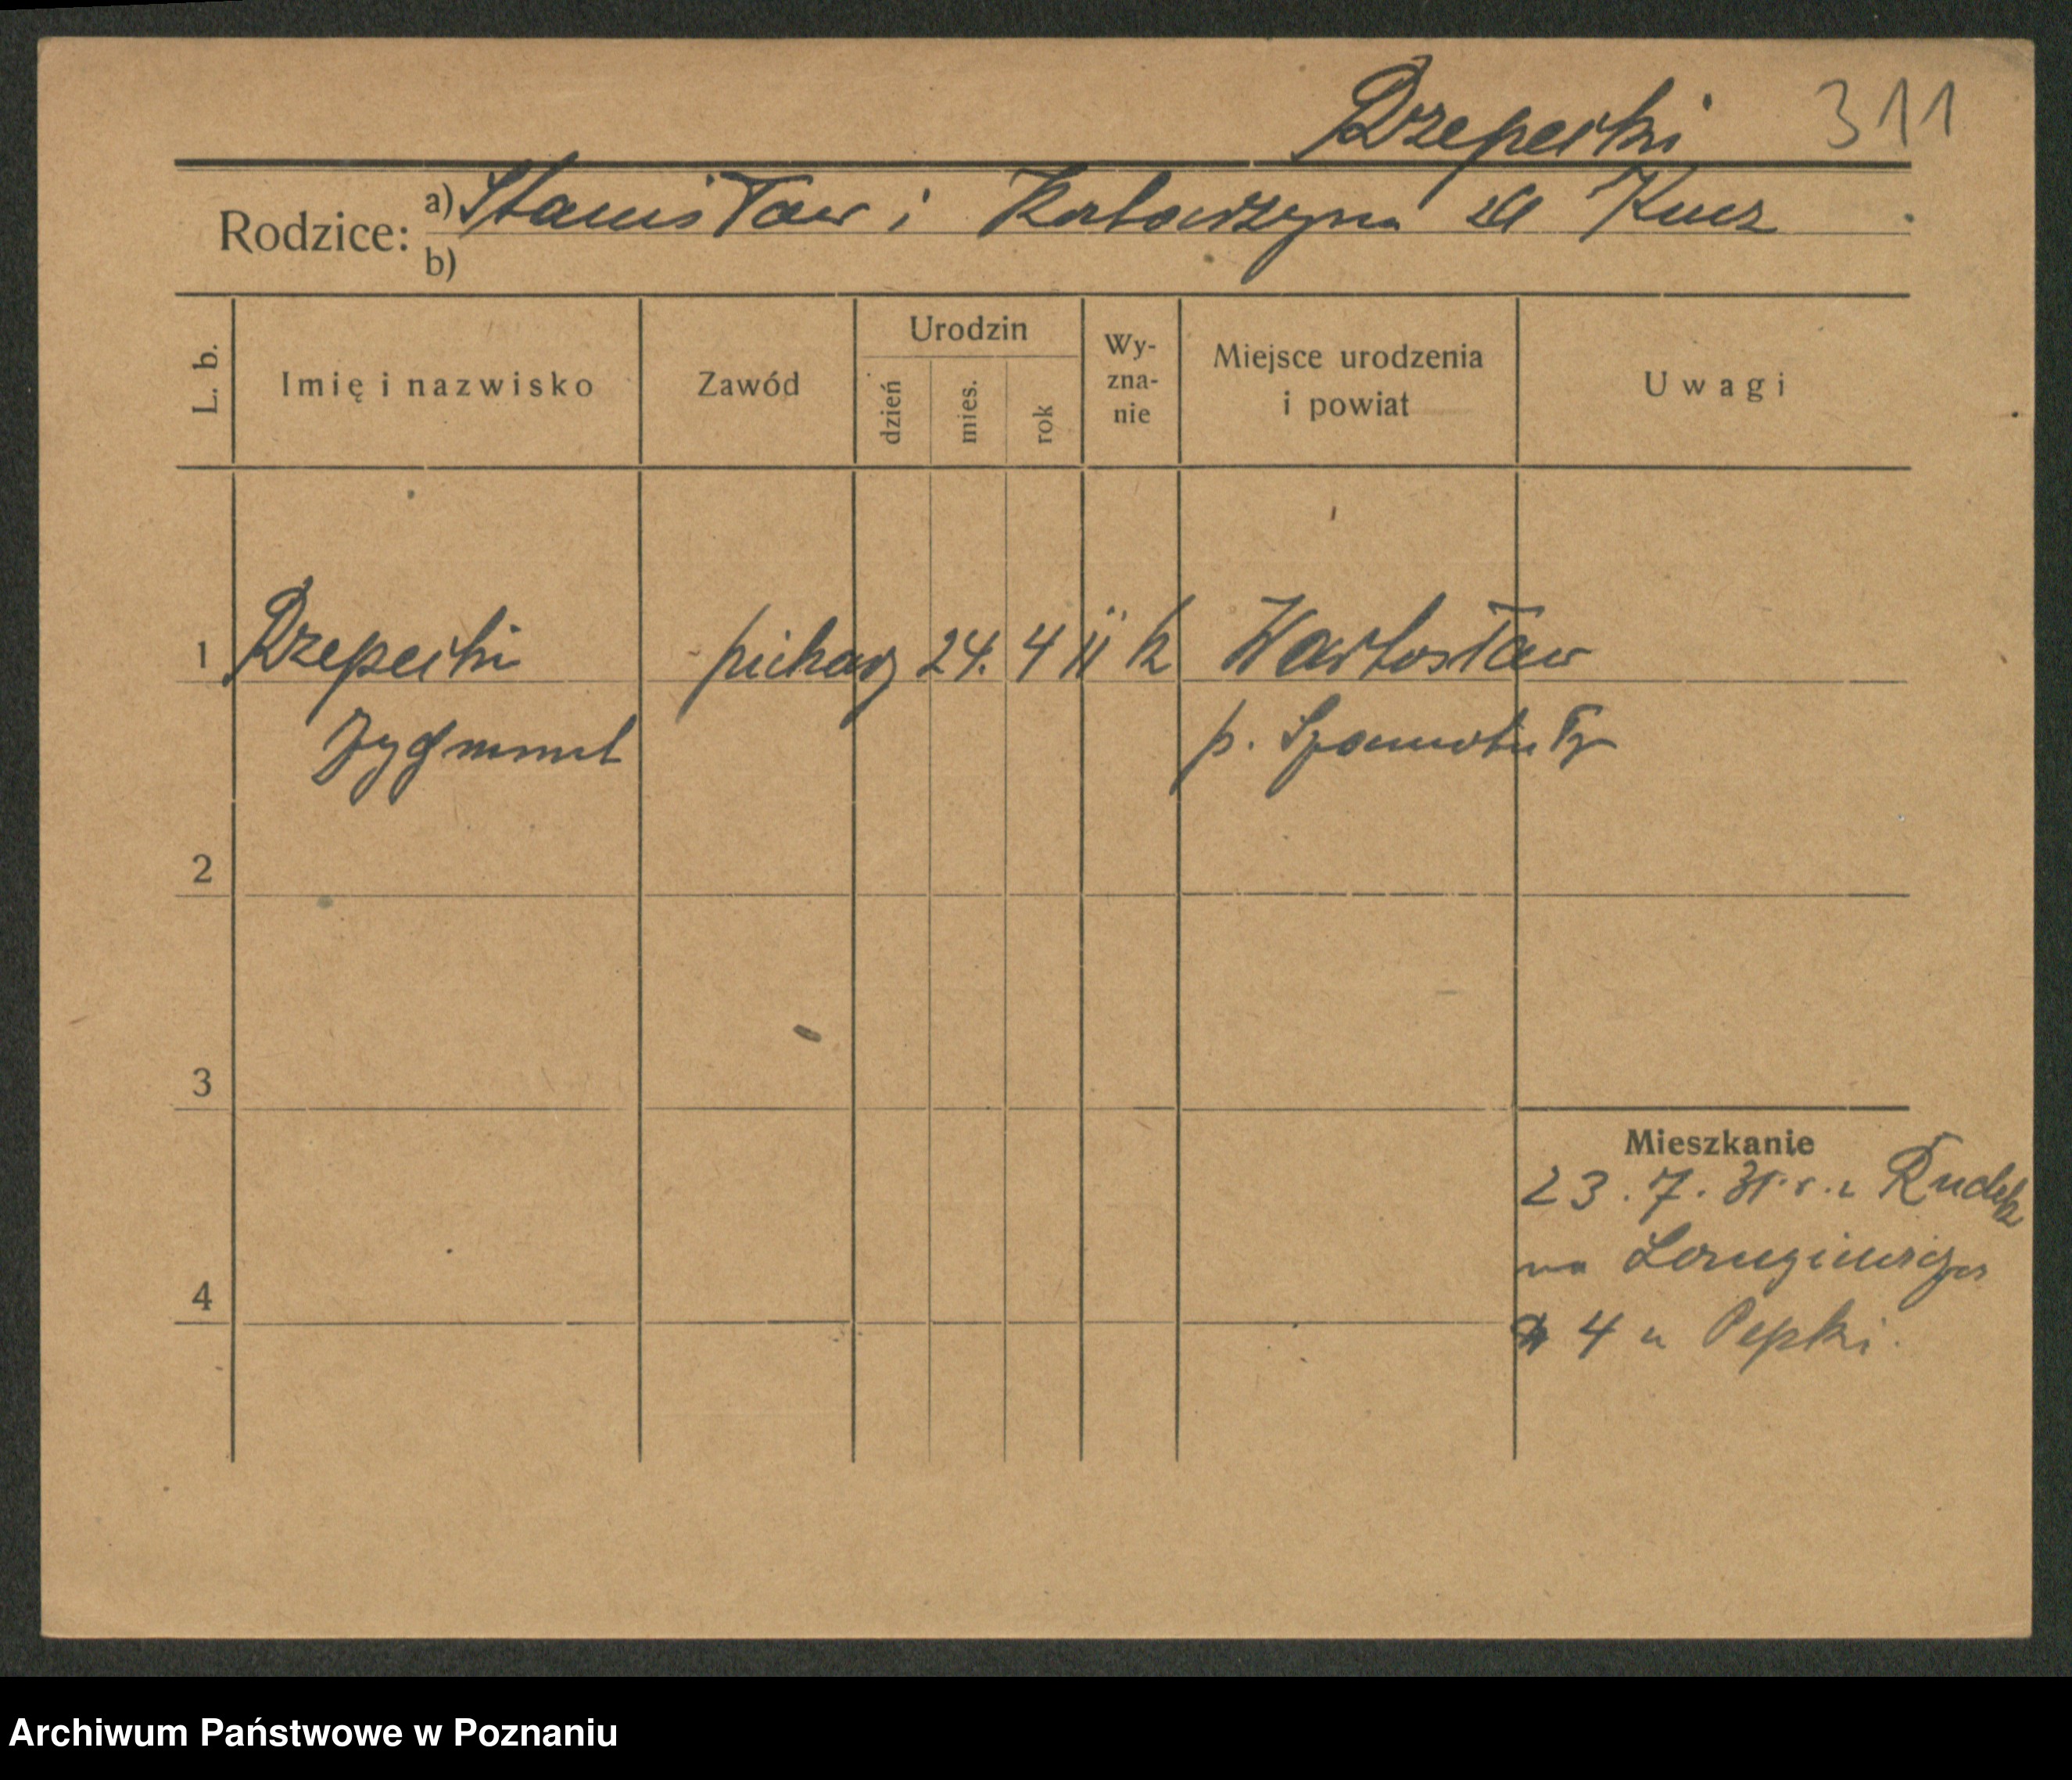 Rzepecki 311
Rodzice: a) Stanisław i Katarzyna zd Kucz
b)
L. b. Imię i nazwisko Zawód Urodzin dzień mies. rok Wy-zna-nie Miejsce urodzenia i powiat Uwagi
1 Rzepecki piekarz 24. 4 11 k Wartosław
Zygmunt p. Szamotuły
2
3
Mieszkanie
23. 7. 31. r. z Rudek
na
4
4 u Pepki.
Archiwum Państwowe w Poznaniu